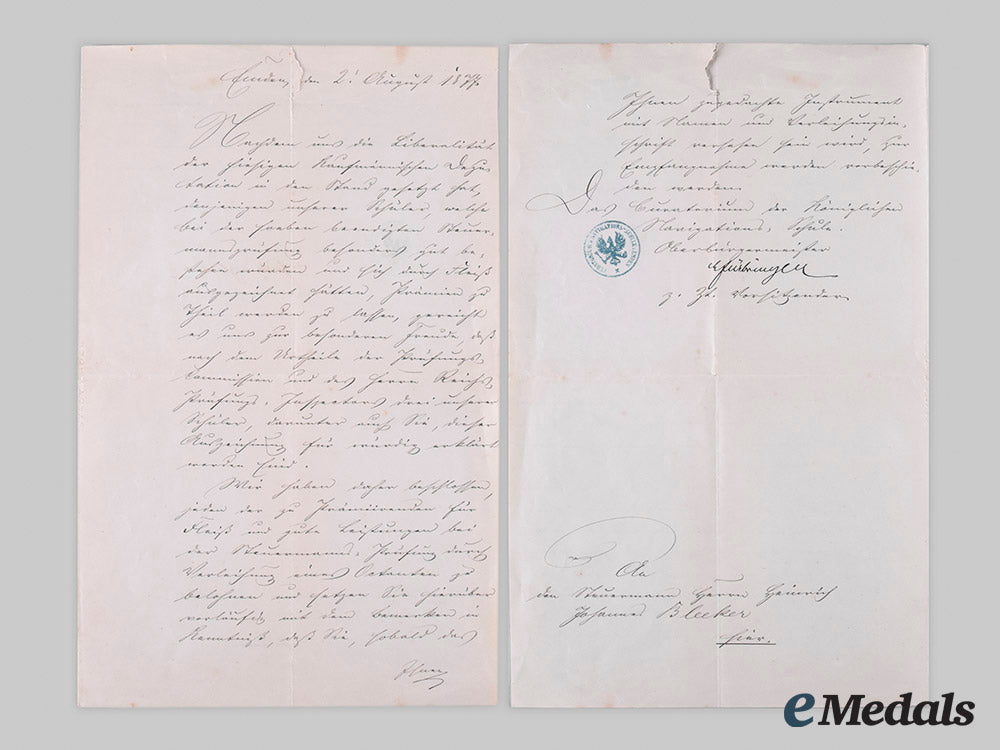 Emden, den 2t August 1877.
Nachdem uns die Liberalität
der hiesigen Kaufmännischen Depu-
tation in den Stand gesetzt hat,
denjenigen unserer Schüler, welche
bei der soeben beendigten Steuer-
mannsprüfung besonders gut be-
stehen würden und sich durch Fleiß
ausgezeichnet hätten, Prämien zu
Theil werden zu lassen, gereicht
es uns zur besonderen Freude, daß
nach dem Urtheile der Prüfungs-
Kommission und des Herrn Reichs
Prüfungs-Inspectors drei unserer
Schüler, darunter auch Sie, dieser
Auszeichnung für würdig erklärt
worden sind.
Wir haben daher beschlossen,
jeden der zu Prämiirenden für
Fleiß und gute Leistungen bei
der Steuermanns-Prüfung durch
Verleihung eines Octanten zu
belohnen und setzen Sie hierüber
vorläufig mit dem Bemerken in
Kenntniß, daß Sie, sobald das
Ihnen
Ihnen zugedachte Instrument
mit Namen und Verleihungsin-
schrift versehen sein wird, zur
Empfangnahme werden vorbeschie-
den werden.
Das Curatorium der Königlichen
Navigations-Schule.
Oberbürgermeister
Fürbringer
z. Zt. Vorsitzender
An
den Steuermann Herrn Heinrich
Johannes Bleeker
hier.
eMedals